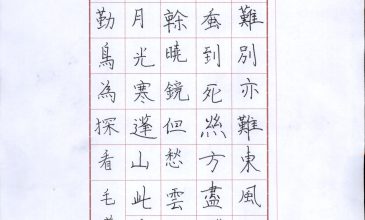 難別亦難東風
蚕到死絲方盡
曉鏡但愁雲
月光寒蓬山此
勤鳥為探看毛